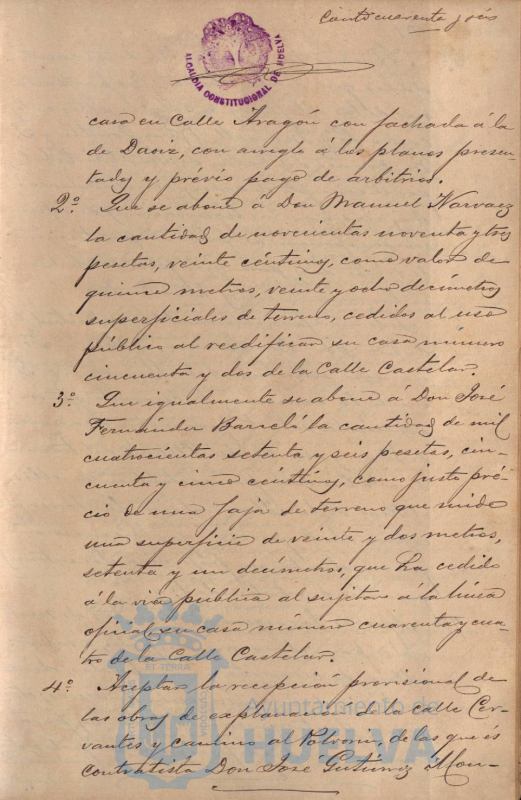 Ciento cuarenta y seis
ALCALDIA CONSTITUCIONAL DE HUELVA
casa en Calle Aragón con fachada á la
de Daoiz, con arreglo á los planos presen-
tados y prévio pago de arbitrios.
2º. Que se abone á Don Manuel Narvaez
la cantidad de novecientas noventa y tres
pesetas, veinte céntimos, como valor de
quince metros, veinte y ocho decímetros
superficiales de terreno, cedidos al uso
público al reedificar su casa número
cincuenta y dos de la Calle Castelar.
3º. Que igualmente se abone á Don José
Fernandez Barceló la cantidad de mil
cuatrocientas setenta y seis pesetas, cin-
cuenta y cinco céntimos, como justo pré-
cio de una faja de terreno que mide
una superficie de veinte y dos metros,
setenta y un decímetros, que ha cedido
á la via pública al sujetar á la línea
oficial, su casa número cuarenta y cua-
tro de la Calle Castelar.
4º. Aceptar la recepción provisional de
las obras de explanacion de la calle Cer-
vantes y camino al Polvorin, de las que és
contratista Don José Gutierrez Mon-
Ayuntamiento de
HUELVA